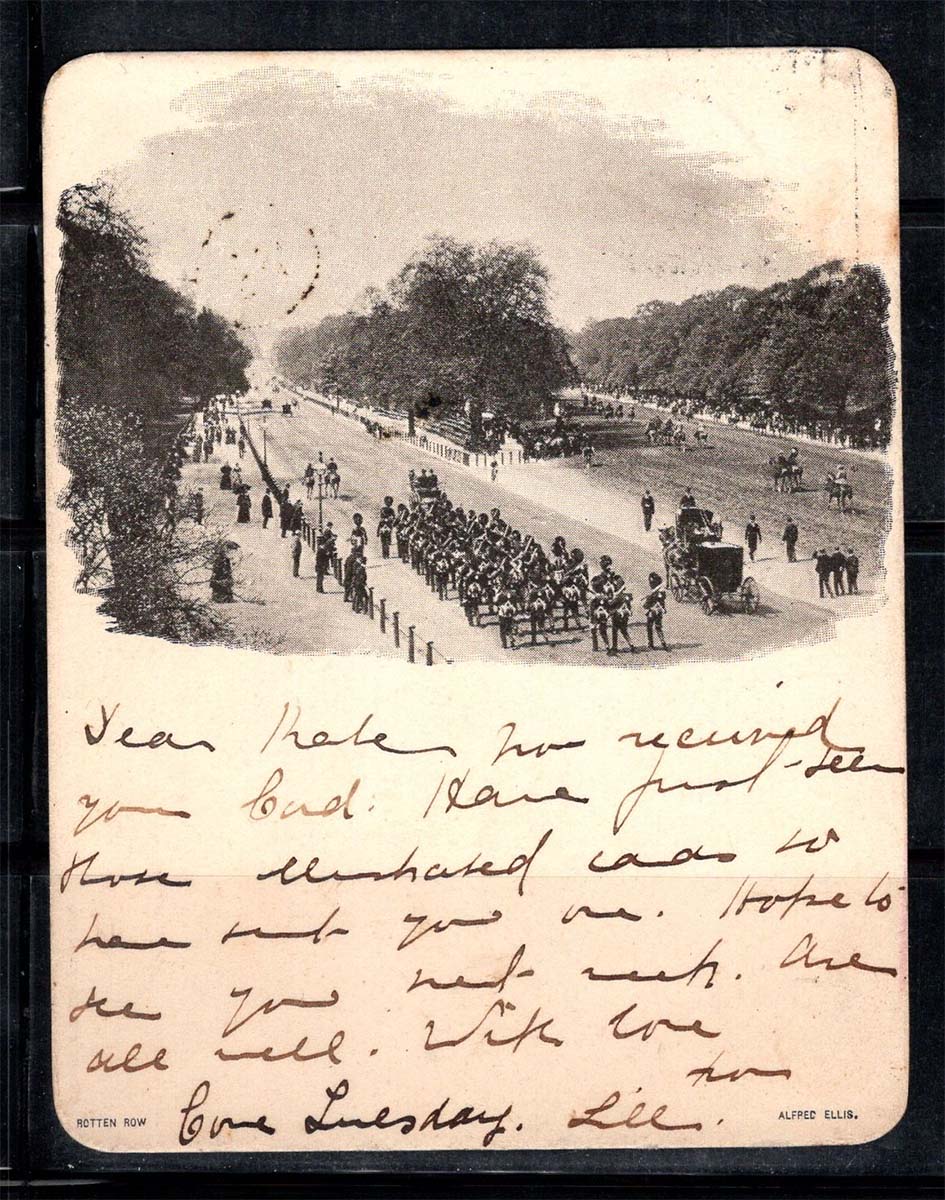 Dear Kate have received
your Card. Have just seen
those illustrated cards so
have sent you one. Hope to
see you next week. Are
all well. With love
from
Come Tuesday. Lill.
ROTTEN ROW
ALFRED ELLIS.